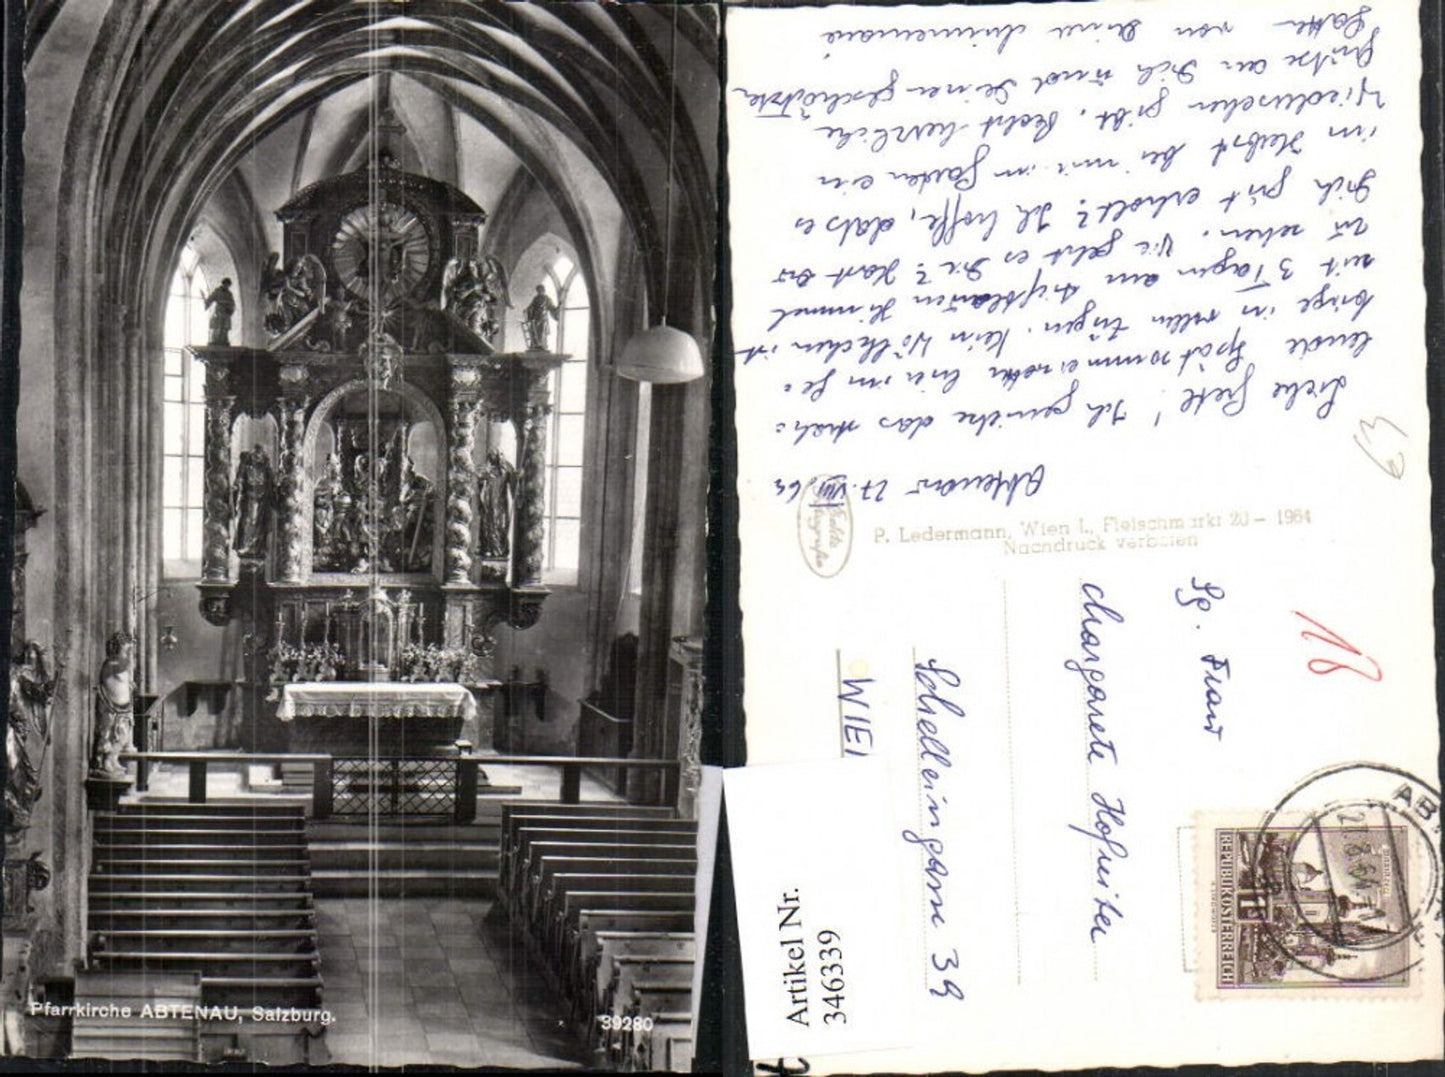 Pfarrkirche ABTENAU, Salzburg.
39280
Abtenau 27. VIII 64
Liebe Gretl! Ich genieße das strah=
lende Spätsommerwetter hier im Ge=
birge in vollen Zügen. Kein Wölkchen ist
seit 3 Tagen am tiefblauen Himmel
zu sehen. Wie geht es Dir? Hast Du
Dich gut erholt? Ich hoffe, dass es
im Herbst bei mir im Garden ein
Wiedersehen gibt. Recht herzliche
Grüße an Dich und Deinen geschätzten
Gatten von Deiner
P. Ledermann, Wien I., Fleischmarkt 20 – 1964
Nachdruck verboten
Echte
Fotografie
Frau
Margarete Hofreiter
Schelleingasse 39
WIE
18
REPUBLIK ÖSTERREICH
AB
27.8.64
Artikel Nr.
346339